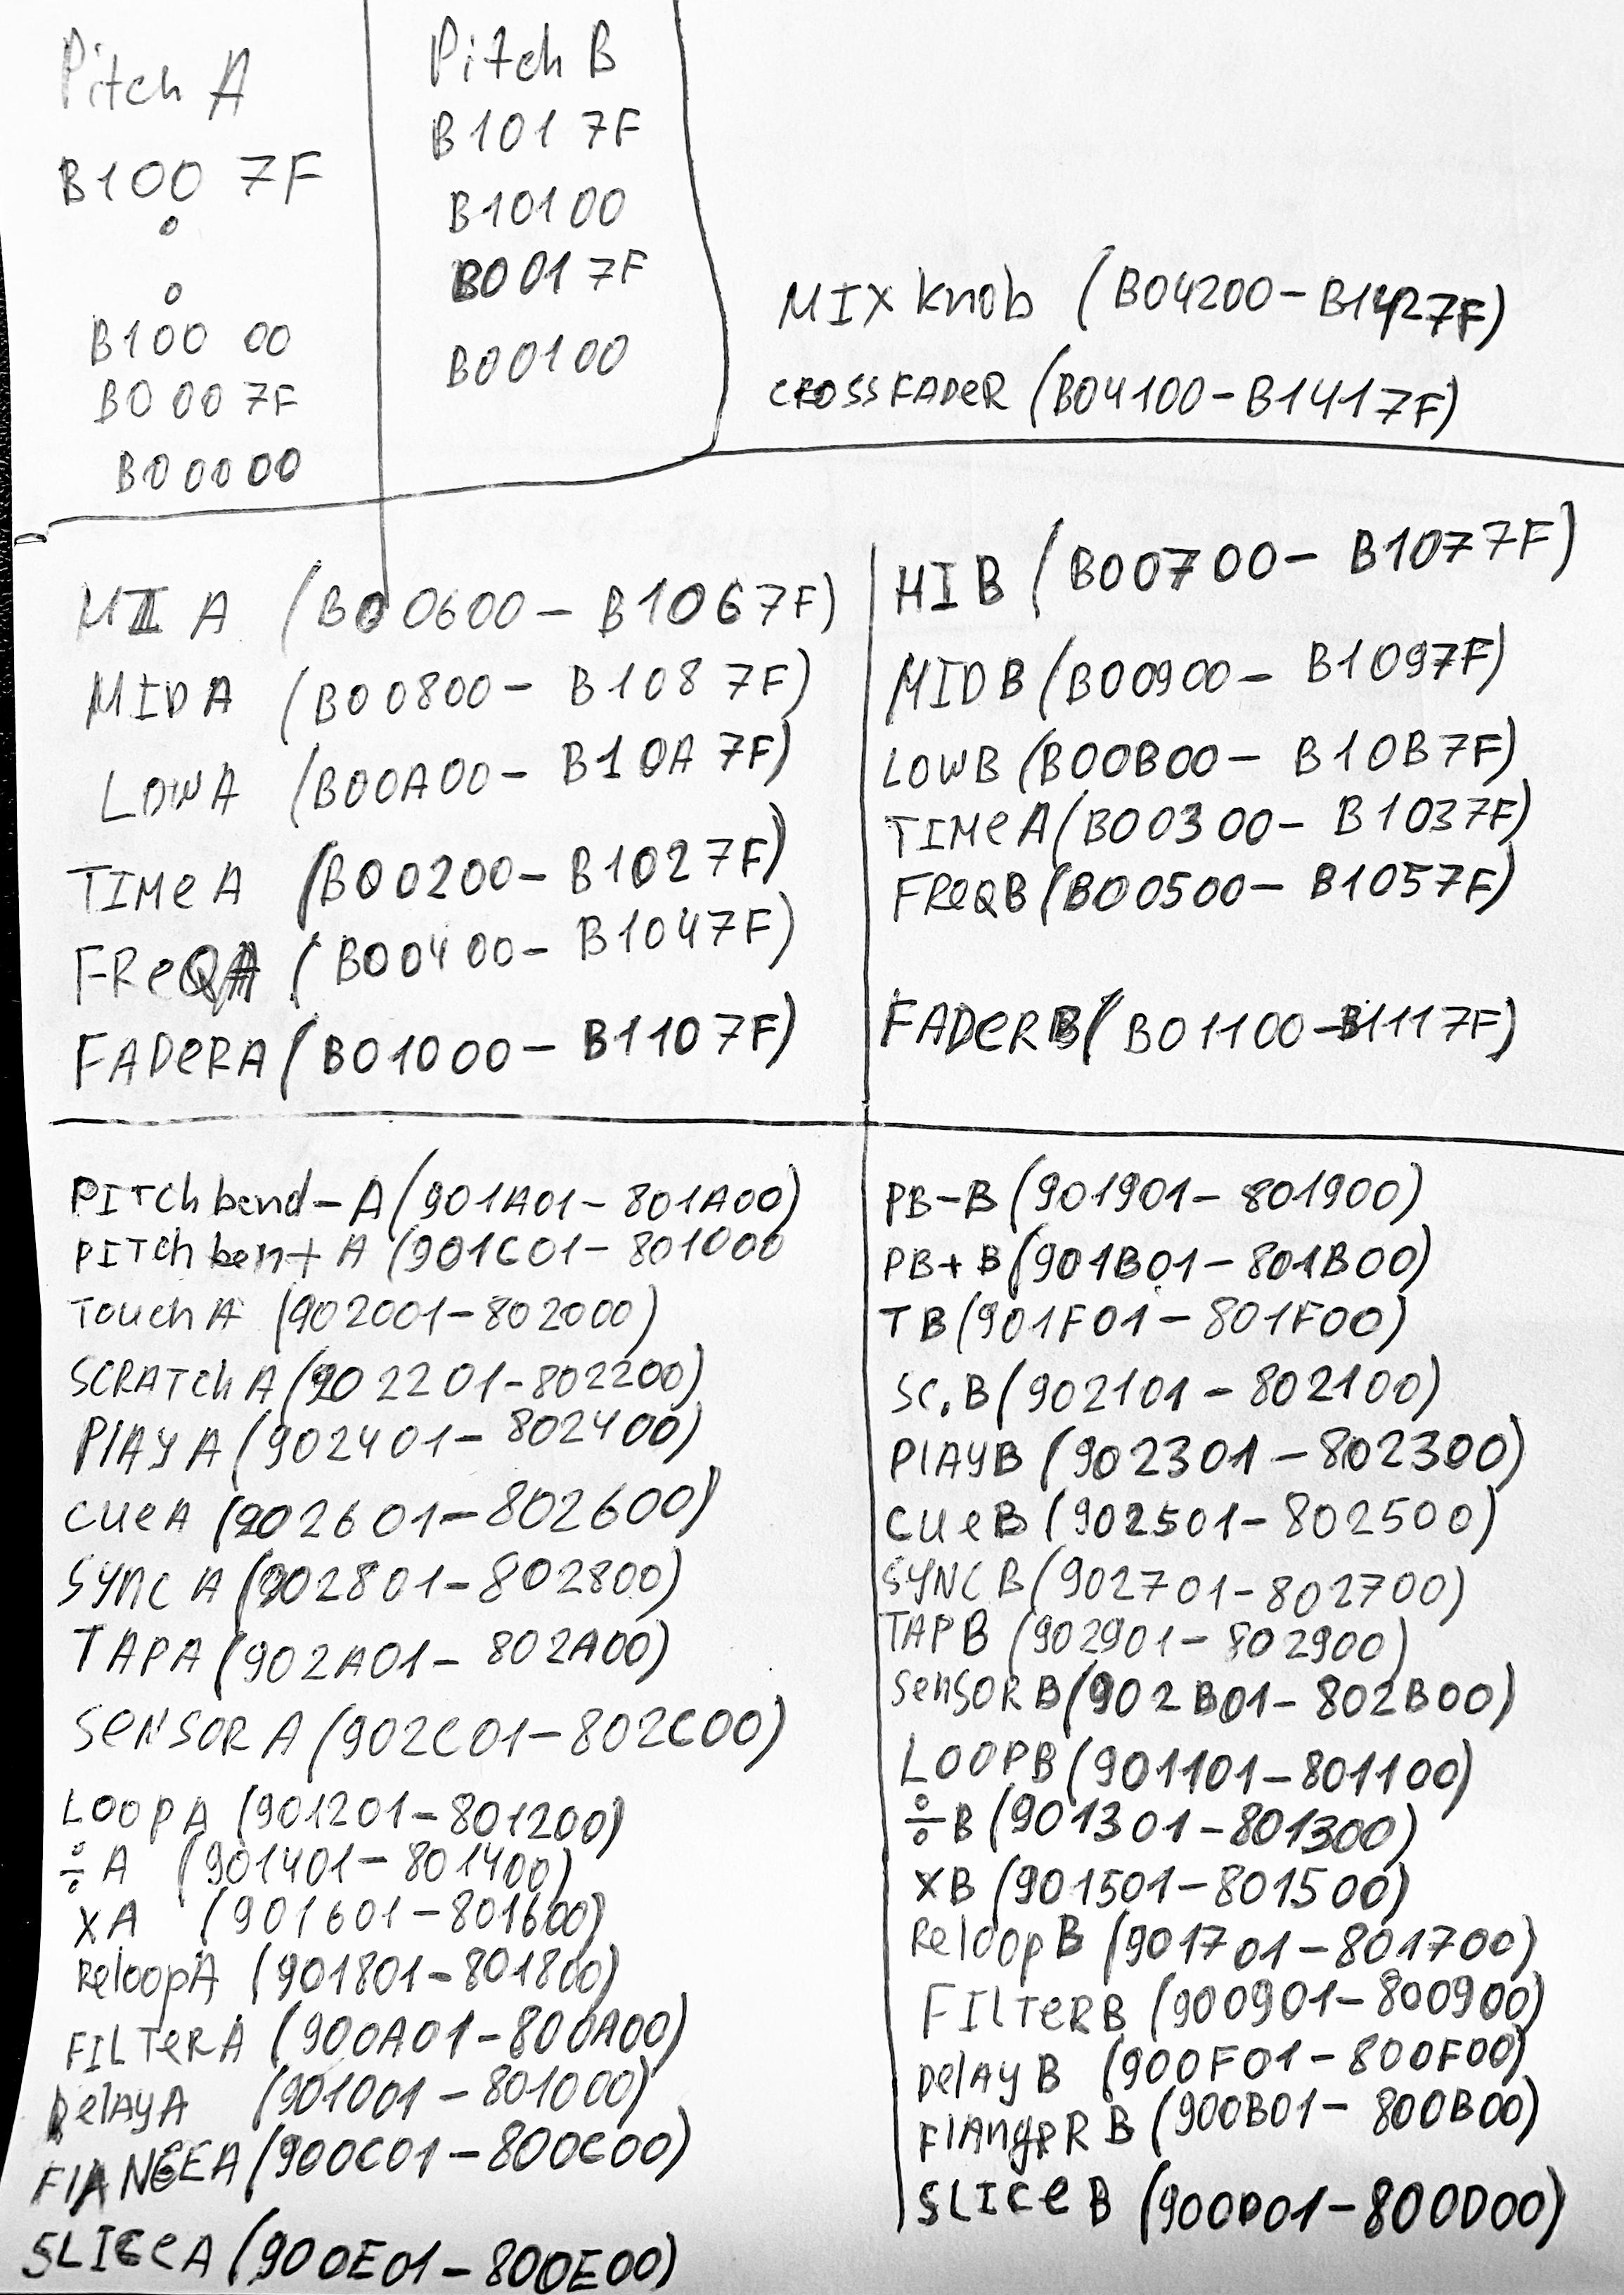 Pitch A
B100 7F
B100 00
B000 7F
B00000
Pitch B
B101 7F
B10100
B001 7F
B00100
MIX knob (B04200-B1427F)
CROSSFADeR (B04100-B1417F)
A (B00600-B1067F)
MIDA (B00800-B1087F)
LOWA (B00A00-B10A7F)
TIMeA (B00200-B1027F)
FReQA (B00400-B1047F)
FADeRA (B01000-B1107F)
HIB (B00700-B1077F)
MIDB (B00900-B1097F)
LOWB (B00B00-B10B7F)
TIMeA (B00300-B1037F)
FReQB (B00500-B1057F)
FADeRB (B01100-B1117F)
PITchbend-A (901A01-801A00)
PITchben+A (901C01-801000
TouchA (902001-802000)
SCRATchA (902201-802200)
PlAYA (902401-802400)
CUeA (902601-802600)
SYNCA (902801-802800)
TAPA (902A01-802A00)
SeNSORA (902C01-802C00)
LOOPA (901201-801200)
÷A (901401-801400)
XA (901601-801600)
ReloopA (901801-801800)
FILTeRA (900A01-800A00)
DelAyA (901001-801000)
FlANGEA (900C01-800C00)
SLICeA (900E01-800E00)
PB-B (901901-801900)
PB+B (901B01-801B00)
TB (901F01-801F00)
SC.B (902101-802100)
PlAYB (902301-802300)
CUeB (902501-802500)
SYNCB (902701-802700)
TAPB (902901-802900)
SenSORB (902B01-802B00)
LOOPB (901101-801100)
÷B (901301-801300)
XB (901501-801500)
ReloopB (901701-801700)
FILTeRB (900901-800900)
DelAyB (900F01-800F00)
FlAngeRB (900B01-800B00)
SLICeB (900D01-800D00)